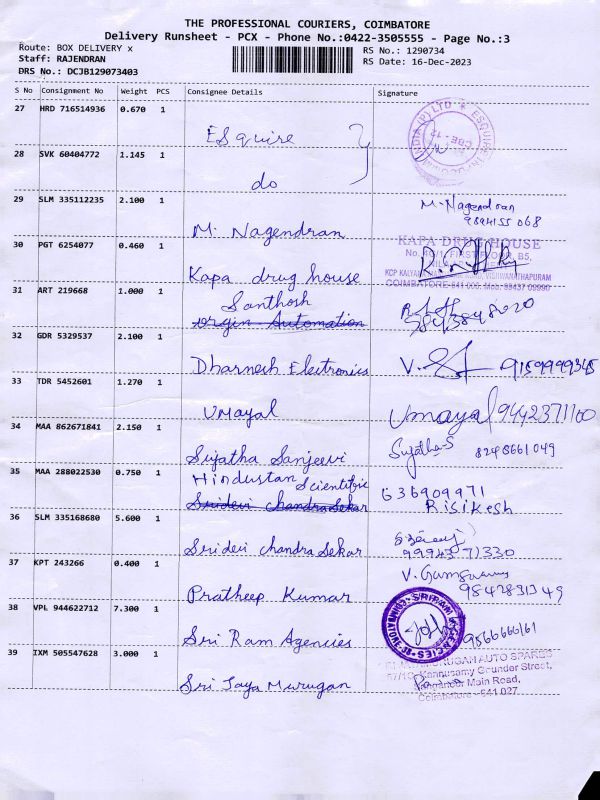 THE PROFESSIONAL COURIERS, COIMBATORE
Delivery Runsheet - PCX - Phone No.:0422-3505555 - Page No.:3
Route: BOX DELIVERY x
RS No.: 1290734
Staff: RAJENDRAN
RS Date: 16-Dec-2023
DRS No.: DCJB129073403
S No Consignment No Weight PCS Consignee Details Signature
27 HRD 716514936 0.670 1 Esquire
28 SVK 60404772 1.145 1 do
29 SLM 335112235 2.100 1 M. Nagendran M. Nagendran
9894155068
30 PGT 6254077 0.460 1 Kapa drug house KAPA DRUG HOUSE
COIMBATORE-641 000. Mob: 98437 09990
31 ART 219668 1.000 1 Santhosh
orgin Automation
32 GDR 5329537 2.100 1 Dharnesh Electronics V. 9159999345
33 TDR 5452601 1.270 1 Umayal Umayal 9442371100
34 MAA 862671841 2.150 1 Sujatha Sanjeevi Sujatha.S 8248661049
35 MAA 288022530 0.750 1 Hindustan Scientific
Sridevi ChandraSekar 636909971
Risikesh
36 SLM 335168680 5.600 1 Sridevi ChandraSekar
9994371330
37 KPT 243266 0.400 1 Pratheep Kumar V. 9842831349
38 VPL 944622712 7.300 1 Sri Ram Agencies 9566666161
39 IXM 505547628 3.000 1 Sri Jaya Murugan MURUGAN AUTO SPARES
Kannusamy Grounder Street,
Main Road,
Coimbatore - 641 027